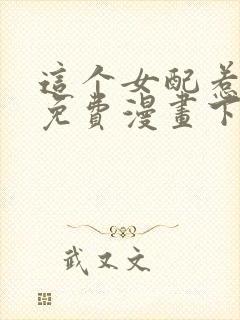 這个女配惹
免費漫畫下
武又文